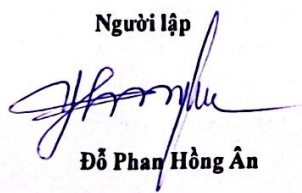 Người lập
Đỗ Phan Hồng Ân